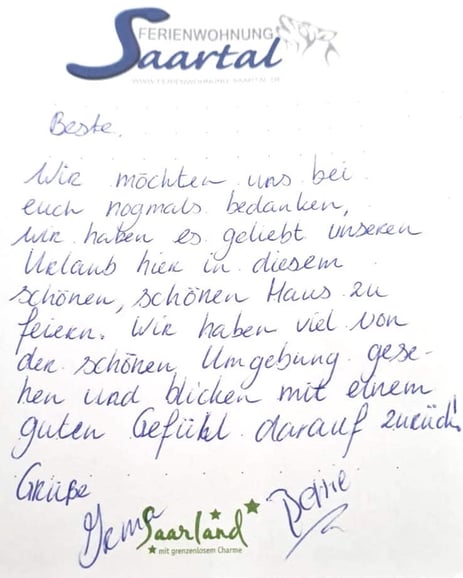 FERIENWOHNUNG
Saartal
WWW.FERIENWOHNUNG-SAARTAL.DE
Beste,
Wir möchten uns bei
euch nogmals bedanken,
wir haben es geliebt unseren
Urlaub hier in diesem
schönen, schönen Haus zu
feiern. Wir haben viel von
der schönen Umgebung gese-
hen und blicken mit einem
guten Gefühl darauf zurück!
Grüße
Irma
Saarland
mit grenzenlosem Charme